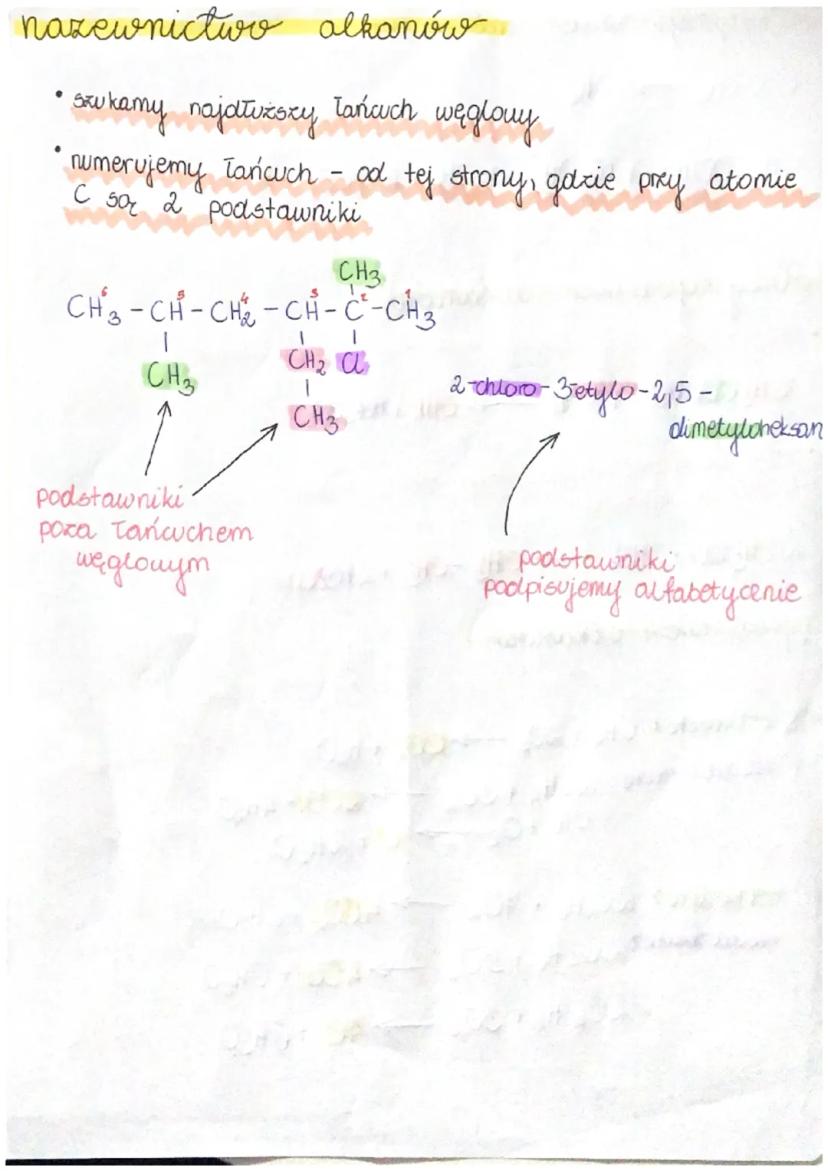 nazewnictwo alkanów
• szukamy najdłuższy łańcuch węglowy
• numerujemy łańcuch - od tej strony, gdzie przy atomie
C są 2 podstawniki
CH3
6 5 4 3 2 1
CH3 - CH - CH2 - CH - C - CH3
CH3 CH2 Cl
CH3
2-chloro-3-etylo-2,5-
dimetyloheksan
podstawniki
poza łańcuchem
węglowym
podstawniki
podpisujemy alfabetycenie